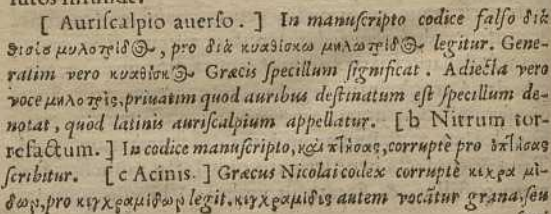 [ Auriſcalpio auerſo . ] In manuſcripto codice falſo διὰ
θισίσ μυλοτρίδος, pro διὰ κυαθίσκω μηλωτρίδος legitur. Gene-
ratim vero κυαθίσκος Græcis ſpecillum ſignificat . Adiecta vero
voce μηλοτρὶς, priuatim quod auribus deſtinatum eſt ſpecillum de-
notat, quod latinis auriſcalpium appellatur. [ b Nitrum tor-
refactum. ] In codice manuſcripto, corruptè pro ὀπλήσας
ſcribitur. [ c Acinis. ] Græcus Nicolai codex corruptè κιχρα μί-
δωρ, pro κιγχραμίδωρ legit. κιγχραμίδις autem vocãtur grana, ſeu